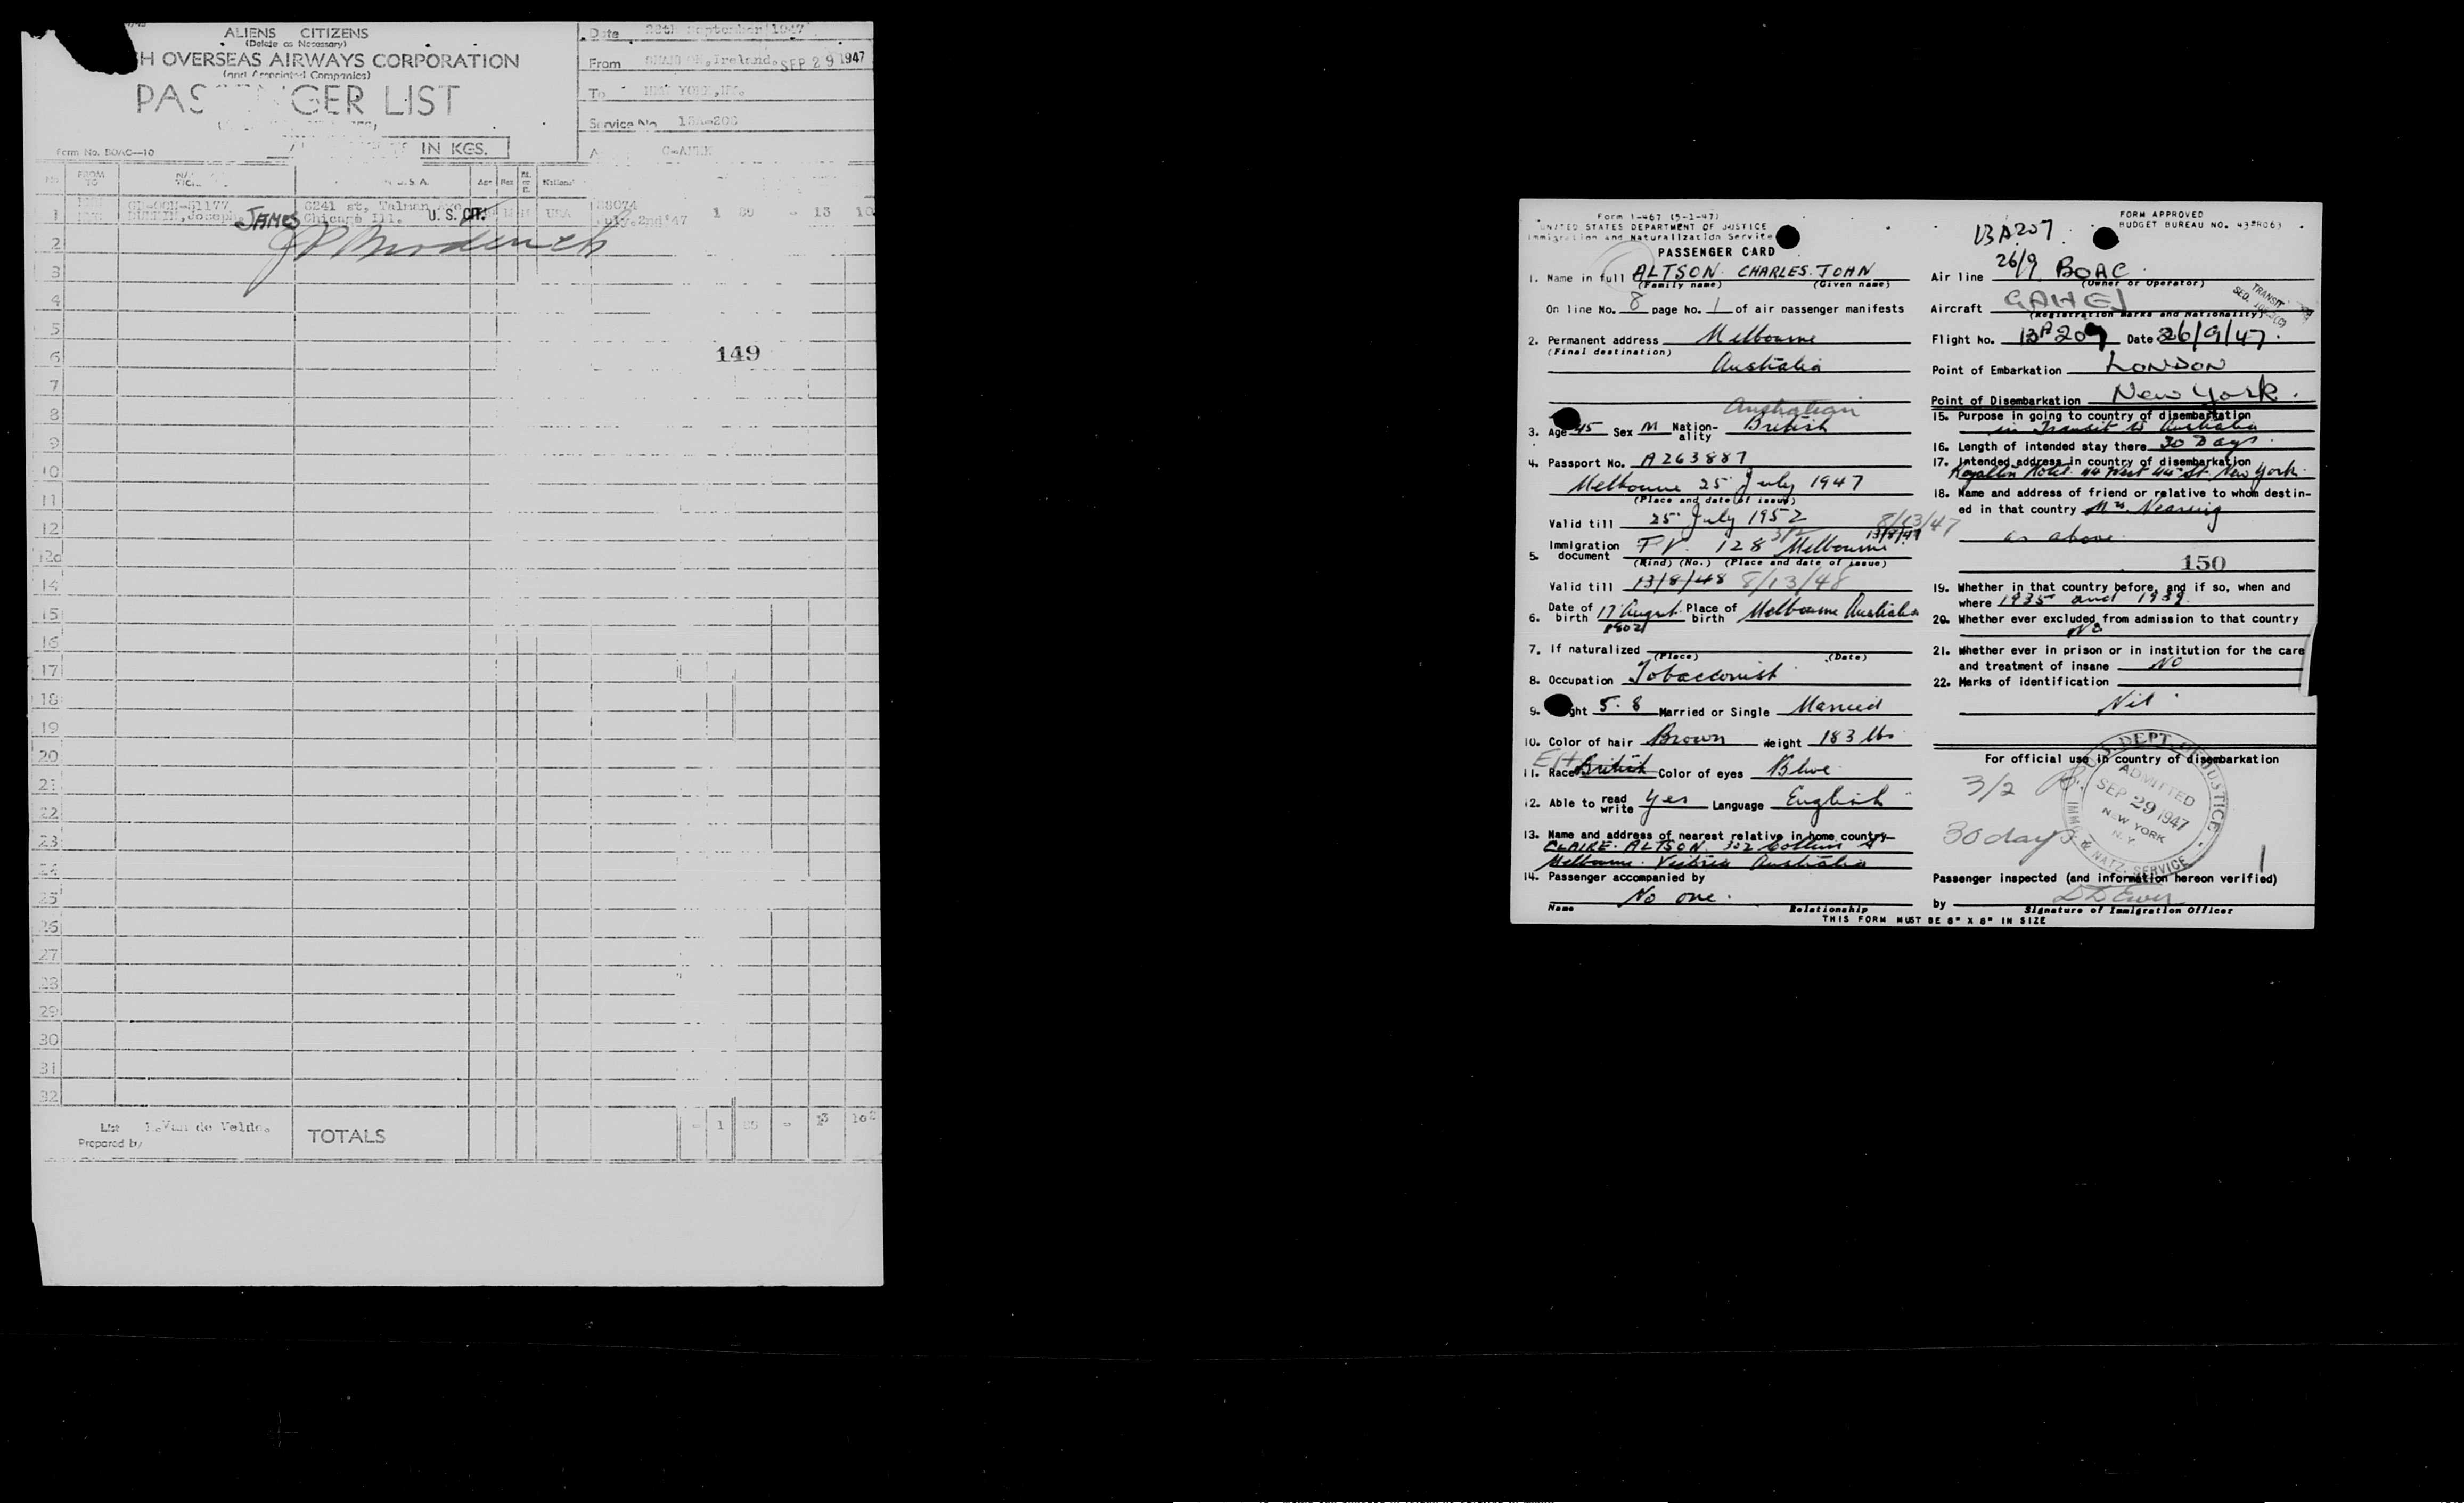 ALIENS CITIZENS
(Delete as Necessary)
H OVERSEAS AIRWAYS CORPORATION
(and Associated Companies)
PAS GER LIST
Form No. BOAC—10
IN KGS.
Date 28th September 1947
From Ireland. SEP 29 1947
To NEW YORK, NY.
Service No
FROM TO
U.S.A.
Age
Sex
1 Joseph JAMES 6241 st, Talman Ave Chicago Ill. U. S. CIT. USA July,2nd'47 1 - 13
2
3
4
5
149
6
7
8
9
10
11
12
12a
14
15
16
17
18
19
20
21
22
23
24
25
26
27
28
29
30
31
32
List Prepared by Van de Velde.
TOTALS
- 1 - 13
Form I-467 (5-1-47)
UNITED STATES DEPARTMENT OF JUSTICE
Immigration and Naturalization Service
PASSENGER CARD
1. Name in full ALTSON CHARLES. JOHN
(Family name) (Given name)
On line No. 8 page No. 1 of air passenger manifests
2. Permanent address Melbourne
(Final destination)
Australia
Australian
3. Age 45 Sex M Nation-ality British
4. Passport No. A263887
Melbourne 25 July 1947
(Place and date of issue)
Valid till 25 July 1952
8/13/47
3/2 13/8/47
5. Immigration document 128 Melbourne
(Kind) (No.) (Place and date of issue)
Valid till 13/8/48 8/13/48
6. Date of birth 17 August 1902 Place of birth Melbourne Australia
7. If naturalized
(Place) (Date)
8. Occupation Tobacconist
9. ght 5. 8 Married or Single Married
10. Color of hair Brown Weight 183 lbs
11. Race British Color of eyes Blue
12. Able to read write Yes Language English
13. Name and address of nearest relative in home country—
CLAIRE. ALTSON. 352 Collins St
Melbourne. Victoria Australia
14. Passenger accompanied by
No one.
Name Relationship
THIS FORM MUST BE 8" X 8" IN SIZE
FORM APPROVED
BUDGET BUREAU NO. 43-R063
BA207
Air line 26/9 BOAC
(Owner or Operator)
TRANSIT
Aircraft GAHEJ
(Registration marks and Nationality)
Flight No. BA209 Date 26/9/47.
Point of Embarkation LONDON
Point of Disembarkation New York.
15. Purpose in going to country of disembarkation
in Transit to Australia
16. Length of intended stay there 30 Days.
17. Intended address in country of disembarkation
Hotel 44 West 44 St. New York.
18. Name and address of friend or relative to whom destin-
ed in that country Mrs.
as above.
150
19. Whether in that country before, and if so, when and
where 1935 and 1939.
20. Whether ever excluded from admission to that country
No
21. Whether ever in prison or in institution for the care
and treatment of insane NO
22. Marks of identification
Nil
For official use in country of disembarkation
3/2
30 days
U.S. DEPT. OF JUSTICE
ADMITTED
SEP 29 1947
NEW YORK
N.Y.
IMM. & NATZ. SERVICE
1
Passenger inspected (and information hereon verified)
by
Signature of Immigration Officer